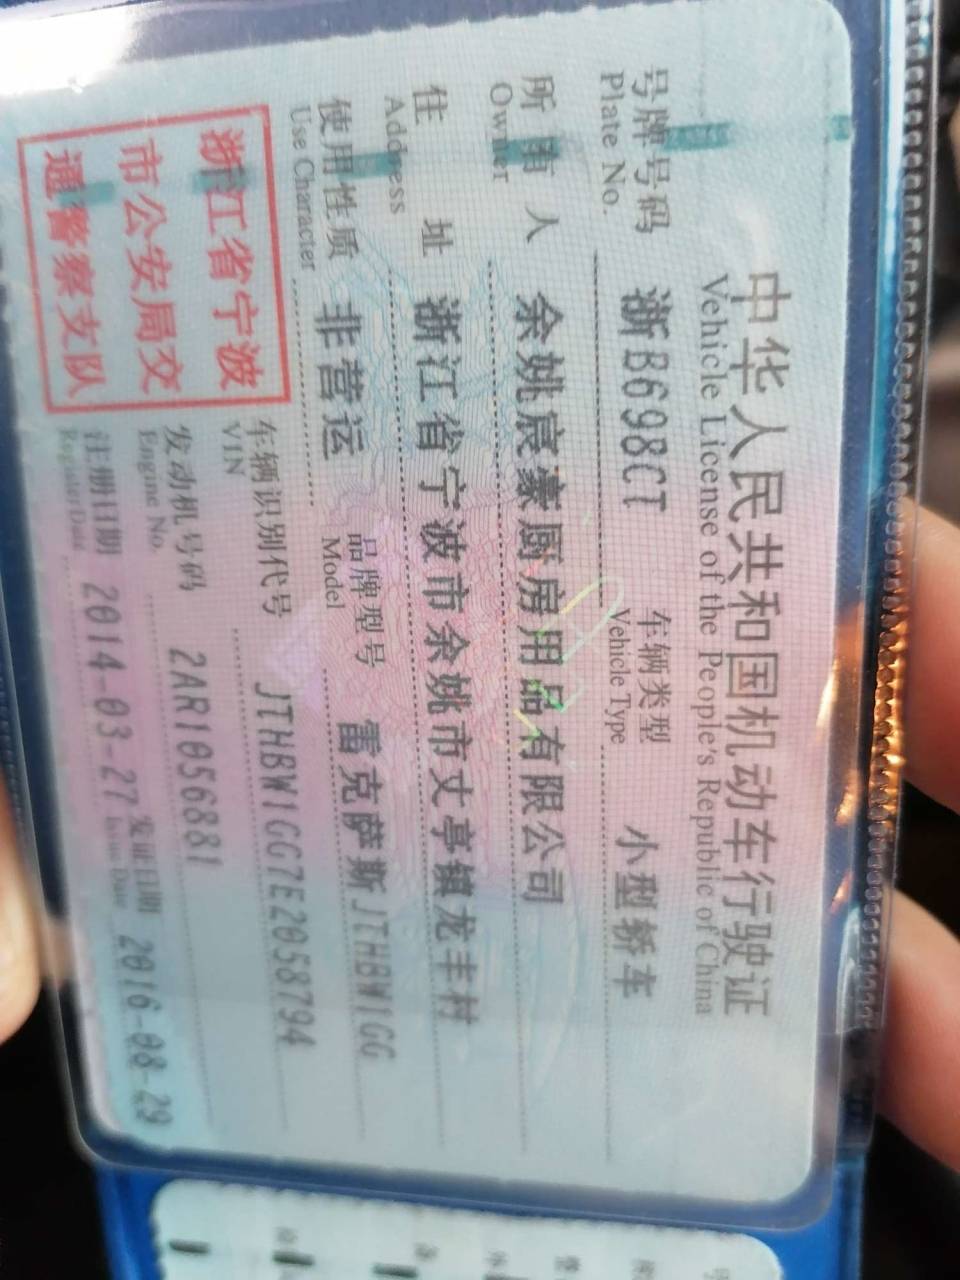 中华人民共和国机动车行驶证
Vehicle License of the People's Republic of China
号牌号码 浙B698CT 车辆类型 小型轿车
Plate No. Vehicle Type
所有人 余姚宸豪厨房用品有限公司
Owner
住址 浙江省宁波市余姚市丈亭镇龙丰村
Address
使用性质 非营运 品牌型号 雷克萨斯JTHBW1GG
Use Character Model
浙江省宁波
市公安局交
通警察支队
车辆识别代号 JTHBW1GG7E2058794
VIN
发动机号码 2AR1056881
Engine No.
注册日期 2014-03-27 发证日期 2016-08-29
Register Date Issue Date